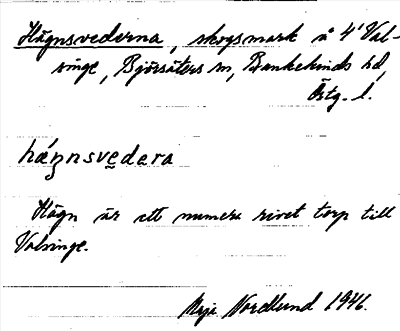 Hägnsvederna, skogsmark å 4' Val-
singe, Björsäters sn, Bankekinds hd,
Östg. l.
hágnsvedera
Hägn är ett numera rivet torp till
Valsinge.
Maja Nordlund 1946.